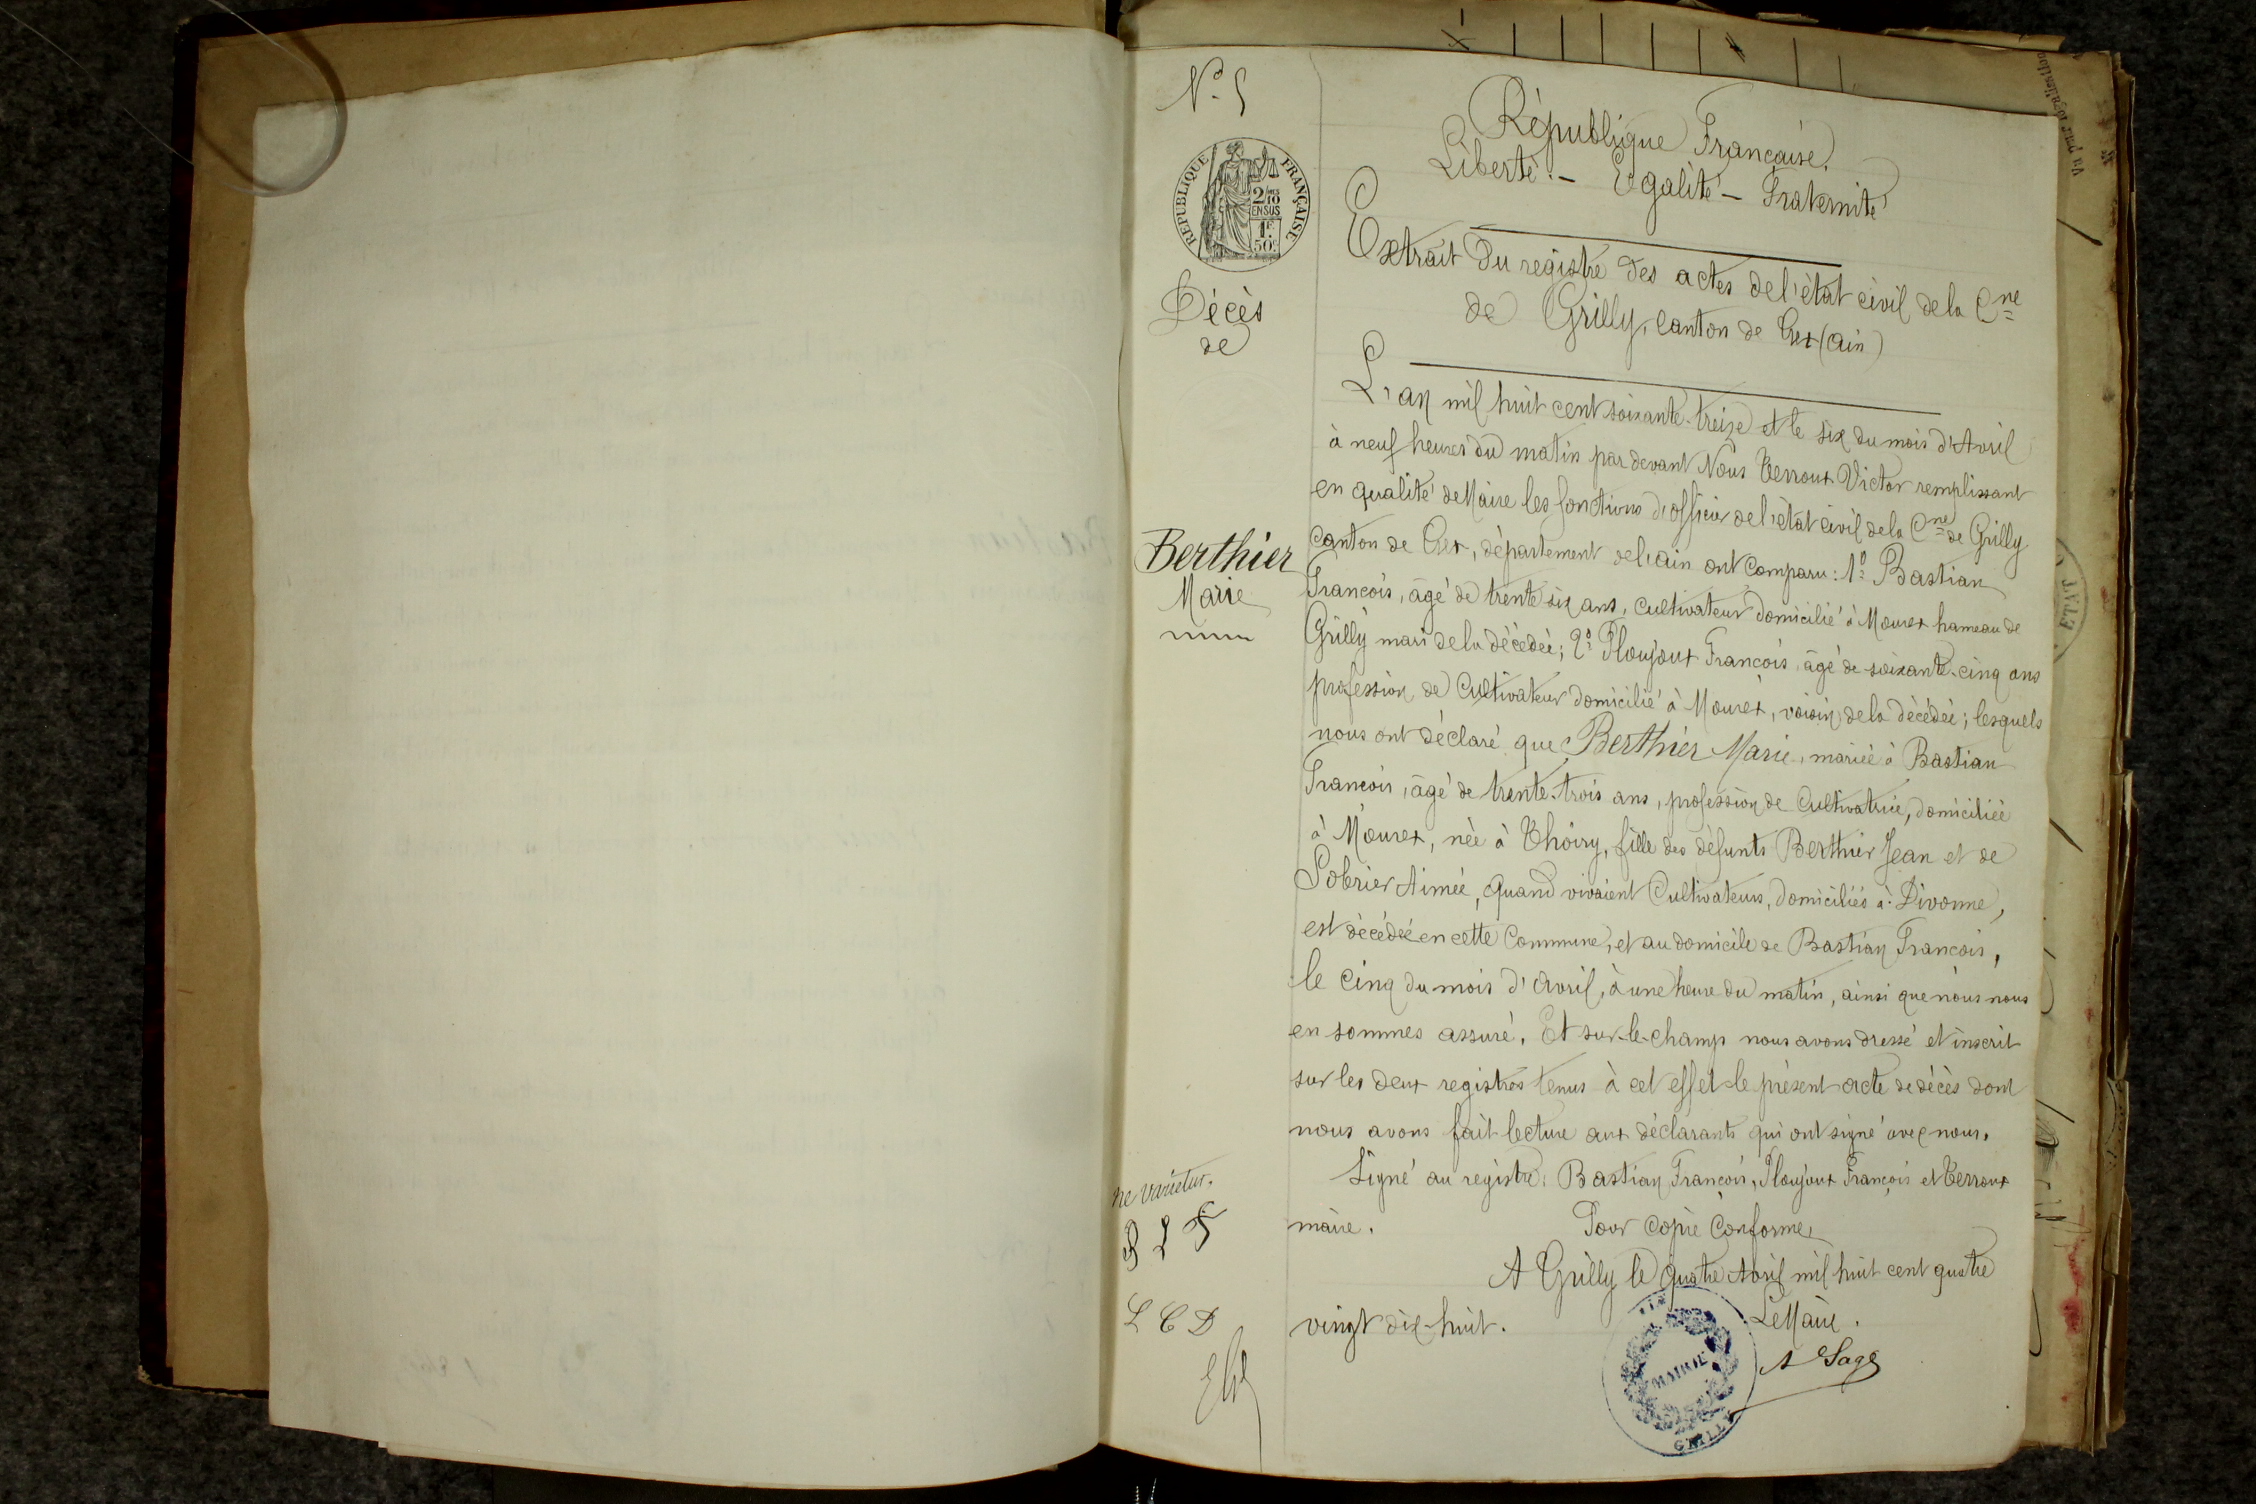 N° 5
RÉPUBLIQUE FRANÇAISE
2/10 EN SUS
1F 50c
Décès
de
Berthier
Marie
ne varietur.
L C D
République Française.
Liberté. – Egalité – Fraternité
Extrait du registre des actes de l'état civil de la Cne
de Grilly, Canton de Gex (Ain)
L'an mil huit cent soixante-treize et le six du mois d'Avril
à neuf heures du matin par devant Nous Terroux Victor remplissant
en qualité de Maire les fonctions d'officier de l'état civil de la Cne de Grilly
Canton de Gex, département de l'ain ont comparu: 1° Bastian
François, âgé de trente six ans, cultivateur domicilié à Mourex hameau de
Grilly mari de la décédée; 2° Ploujoux François, âgé de soixante-cinq ans
profession de Cultivateur domicilié à Mourex, voisin de la décédée; lesquels
nous ont déclaré que Berthier Marie, mariée à Bastian
François, âgé de trente-trois ans, profession de Cultivatrice, domiciliée
à Mourex, née à Thoiry, fille des défunts Berthier Jean et de
Sobrier Aimée, quand vivaient Cultivateurs, domiciliés à Divonne,
est décédée en cette Commune, et au domicile de Bastian François,
le cinq du mois d'Avril, à une heure du matin, ainsi que nous nous
en sommes assuré. Et sur-le-champ nous avons dressé et inscrit
sur les deux registres tenus à cet effet le présent acte de décès dont
nous avons fait lecture aux déclarants qui ont signé avec nous.
Signé au registre: Bastian François, Ploujoux François et Terroux
maire. Pour Copie Conforme
A Grilly le quatre Avril mil huit cent quatre
vingt dix-huit. Le Maire.
MAIRIE
GRILLY